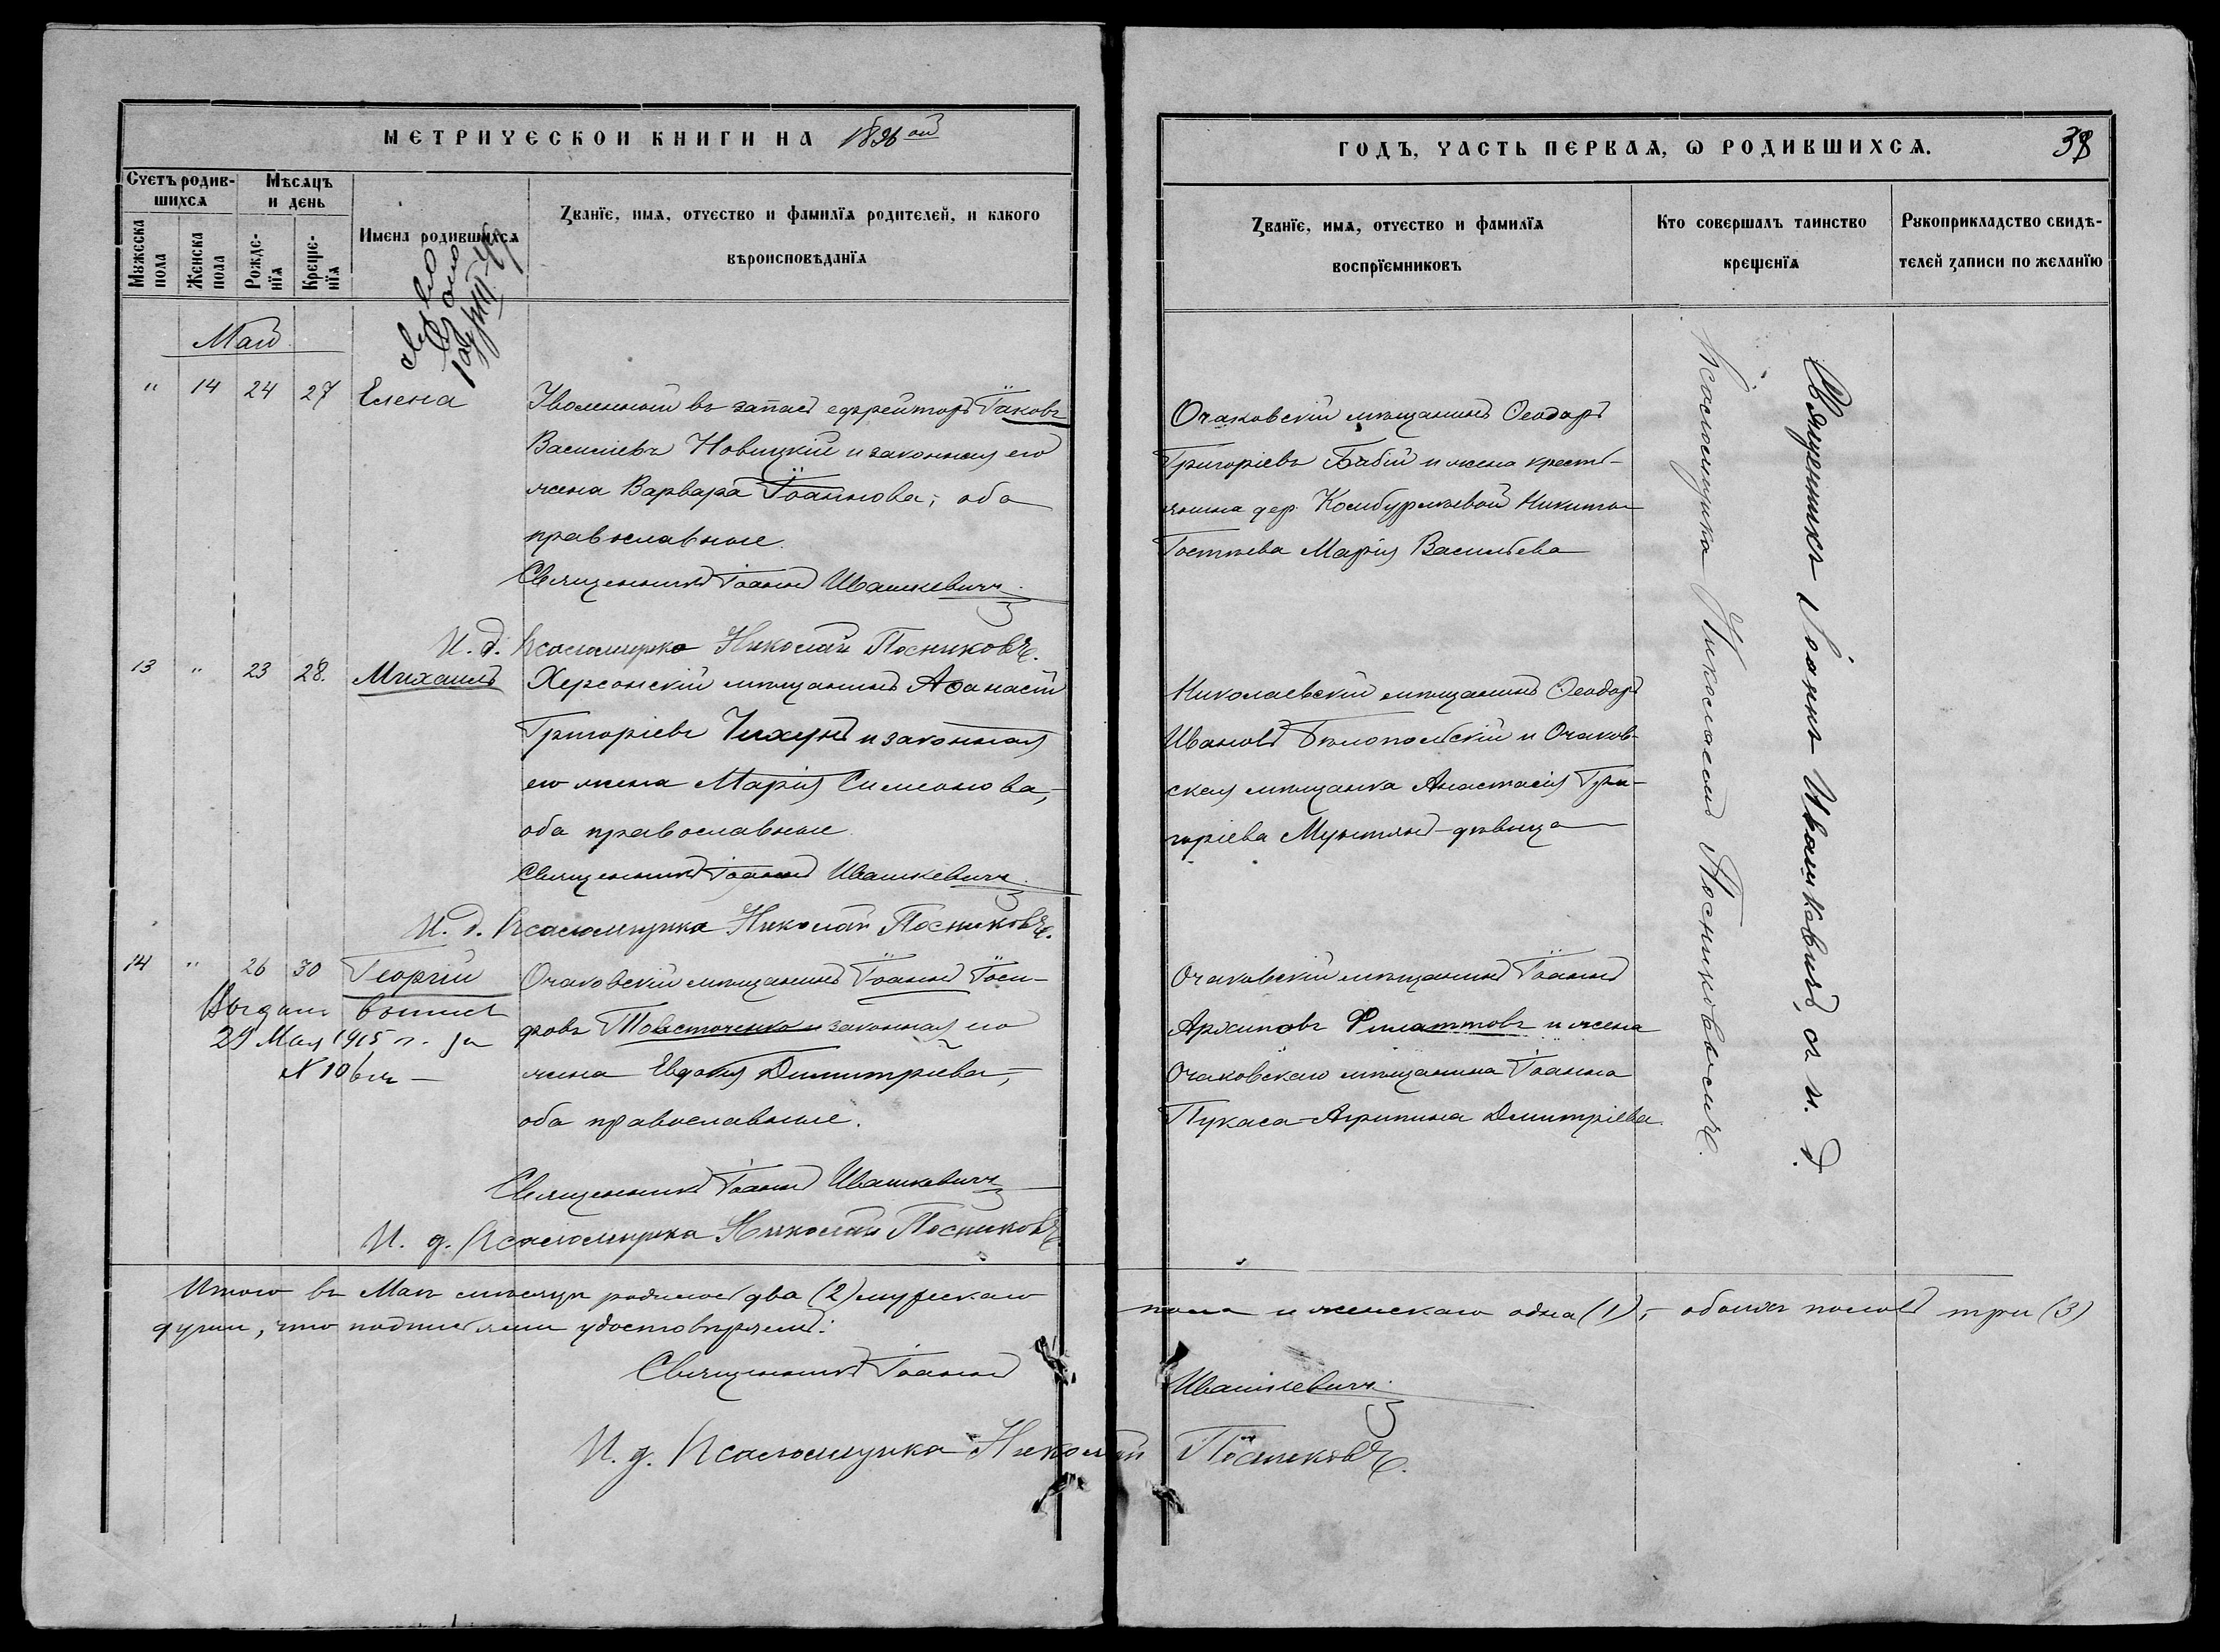 МЕТРИЧЕСКОЙ КНИГИ НА 1896 ой
Счетъ родившихся
Мѣсяцъ и день
Мужеска пола
Женска пола
Рожденїя
Крещенїя
Имена родившихся
Званїе, имя, отчество и фамилїя родителей, и какого вѣроисповѣданїя
Май
" 14 24 27 Елена
Уволенный въ запасъ ефрейторъ Іаковъ
Василіевъ Новицкій и законная его
жена Варвара Іоаннова; оба
православные.
Священникъ Іоаннъ Ивашкевичъ
И. д. Псаломщика Николай Посниковъ.
13 " 23 28. Михаилъ
Херсонскій мѣщанинъ Аѳанасій
Григоріевъ Чихунъ и законная
его жена Марія Симеонова,
оба православные
Священникъ Іоаннъ Ивашкевичъ
И. д. Псаломщика Николай Посниковъ.
14 " 26 30 Георгій
29 Мая 1915 г. за
№ 106
Очаковскій мѣщанинъ Іоаннъ Іоси-
фовъ Товсточенко и законная его
жена Евдокія Димитріева,
оба православные.
Священникъ Іоаннъ Ивашкевичъ
И. д. Псаломщика Николай Посниковъ
Итого въ Маѣ мѣсяцѣ родилось два (2) мужескаго
души, что подписями удостовѣряемъ:
Священникъ Іоаннъ
И. д. Псаломщика Николай
ГОДЪ, ЧАСТЬ ПЕРВАЯ, Ѡ РОДИВШИХСЯ.
38
Званїе, имя, отчество и фамилїя воспрїемниковъ
Кто совершалъ таинство крещенїя
Рукоприкладство свидѣтелей записи по желанїю
Очаковскій мѣщанинъ Ѳеодоръ
Григоріевъ Бабій и жена кресть-
янина дер. Николай Никиты
Марія Васильева
Николаевскій мѣщанинъ Ѳеодоръ
Ивановъ Бѣлопольскій и Очаков-
ская мѣщанка Анастасія Гри-
горіева Мунтянъ - дѣвица
Очаковскій мѣщанинъ Іоаннъ
Архиповъ Филаттовъ и жена
Очаковскаго мѣщанина Іоанна
Пукаса - Агрипина Димитріева.
Священникъ Іоаннъ Ивашкевичъ, съ и. д.
Псаломщика Николаемъ Посниковымъ.
пола и женскаго одна (1), - обоихъ половъ три (3)
Ивашкевичъ
Посниковъ.